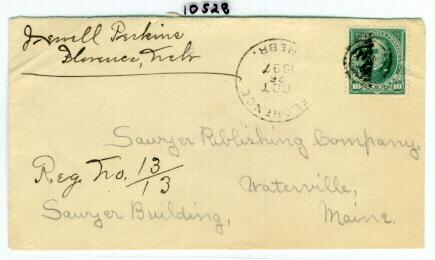 10528
Jewell Perkins
Florence, Nebr
FLORENCE
OCT
26
1897
NEBR.
10 10
Sawyer Publishing Company,
Reg. No. 13/13
Waterville,
Sawyer Building,
Maine.